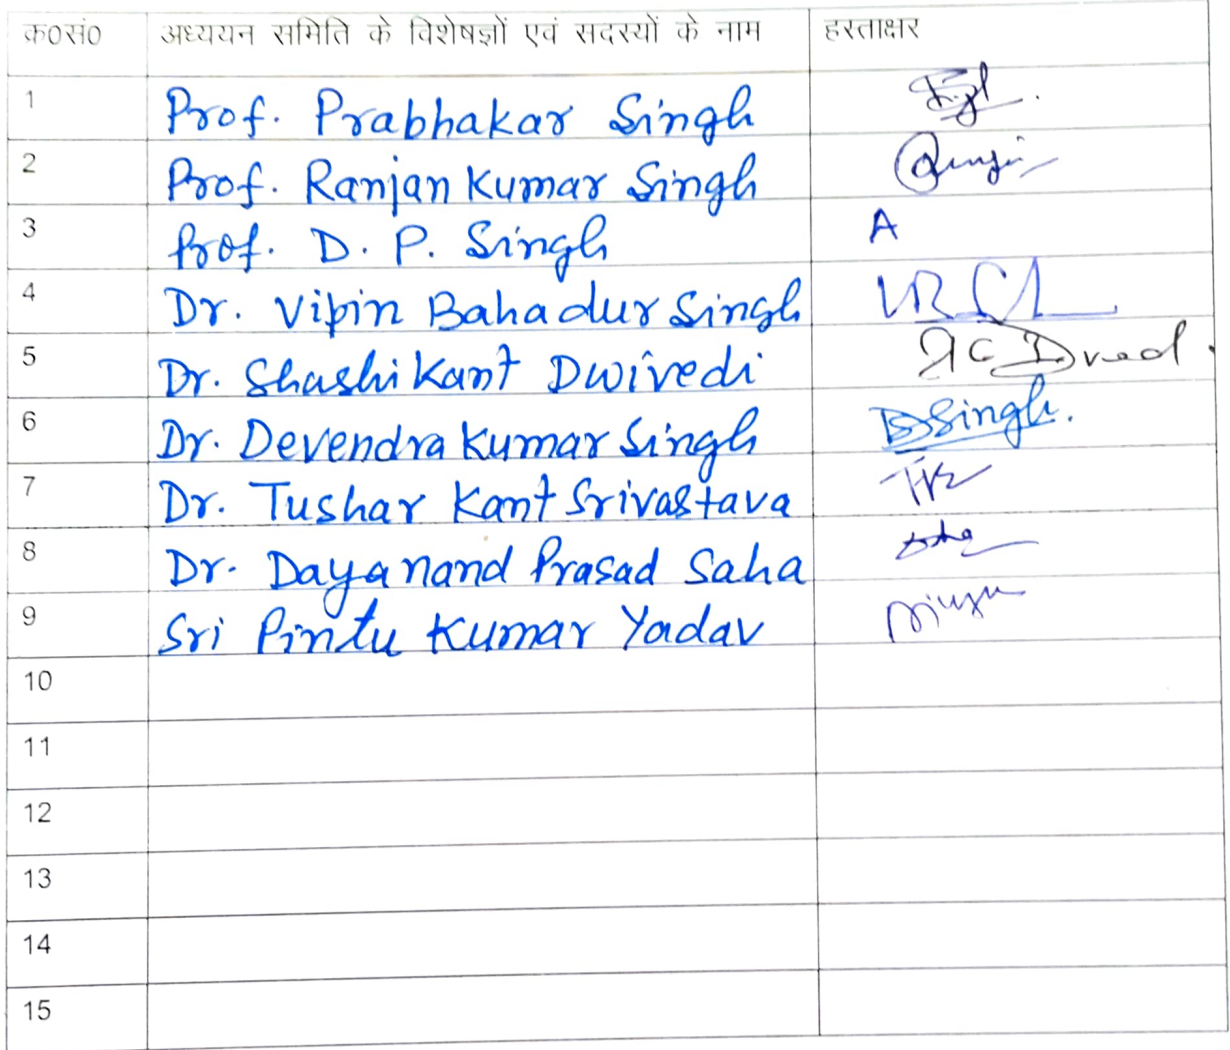 क०सं० अध्ययन समिति के विशेषज्ञों एवं सदस्यों के नाम हस्ताक्षर
1 Prof. Prabhakar Singh
2 Prof. Ranjan Kumar Singh
3 Prof. D. P. Singh A
4 Dr. Vipin Bahadur Singh
5 Dr. Shashi Kant Dwivedi
6 Dr. Devendra Kumar Singh DSingh.
7 Dr. Tushar Kant Srivastava
8 Dr. Dayanand Prasad Saha
9 Sri Pintu Kumar Yadav
10
11
12
13
14
15